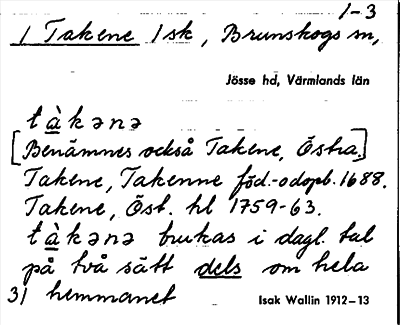 1-3
/ Takene / sk, Brunskogs sn,
Jösse hd, Värmlands län
tàkənə
[Benämnes också Takene, Östra.]
Takene, Takenne föd.-o dopb. 1688.
Takene, Öst. hl 1759-63.
tàkənə brukas i dagl. tal
på två sätt dels om hela
3/ hemmanet Isak Wallin 1912-13